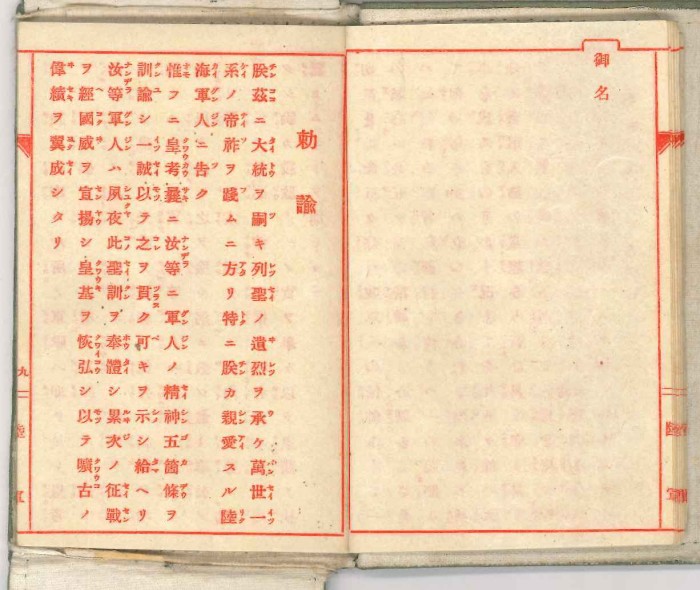 御名
勅諭
朕茲ニ大統ヲ嗣キ列聖ノ遺烈ヲ承ケ萬世一
系ノ帝祚ヲ踐ムニ方リ特ニ朕カ親愛スル陸
海軍人ニ告ク
惟フニ皇考曩ニ汝等ニ軍人ノ精神五箇條ヲ
訓諭シ一誠以テ之ヲ貫ク可キヲ示シ給ヘリ
汝等軍人ハ夙夜此聖訓ヲ奉體シ累次ノ征戰
ヲ經國威ヲ宣揚シ皇基ヲ恢弘シ以テ曠古ノ
偉績ヲ翼成シタリ
九